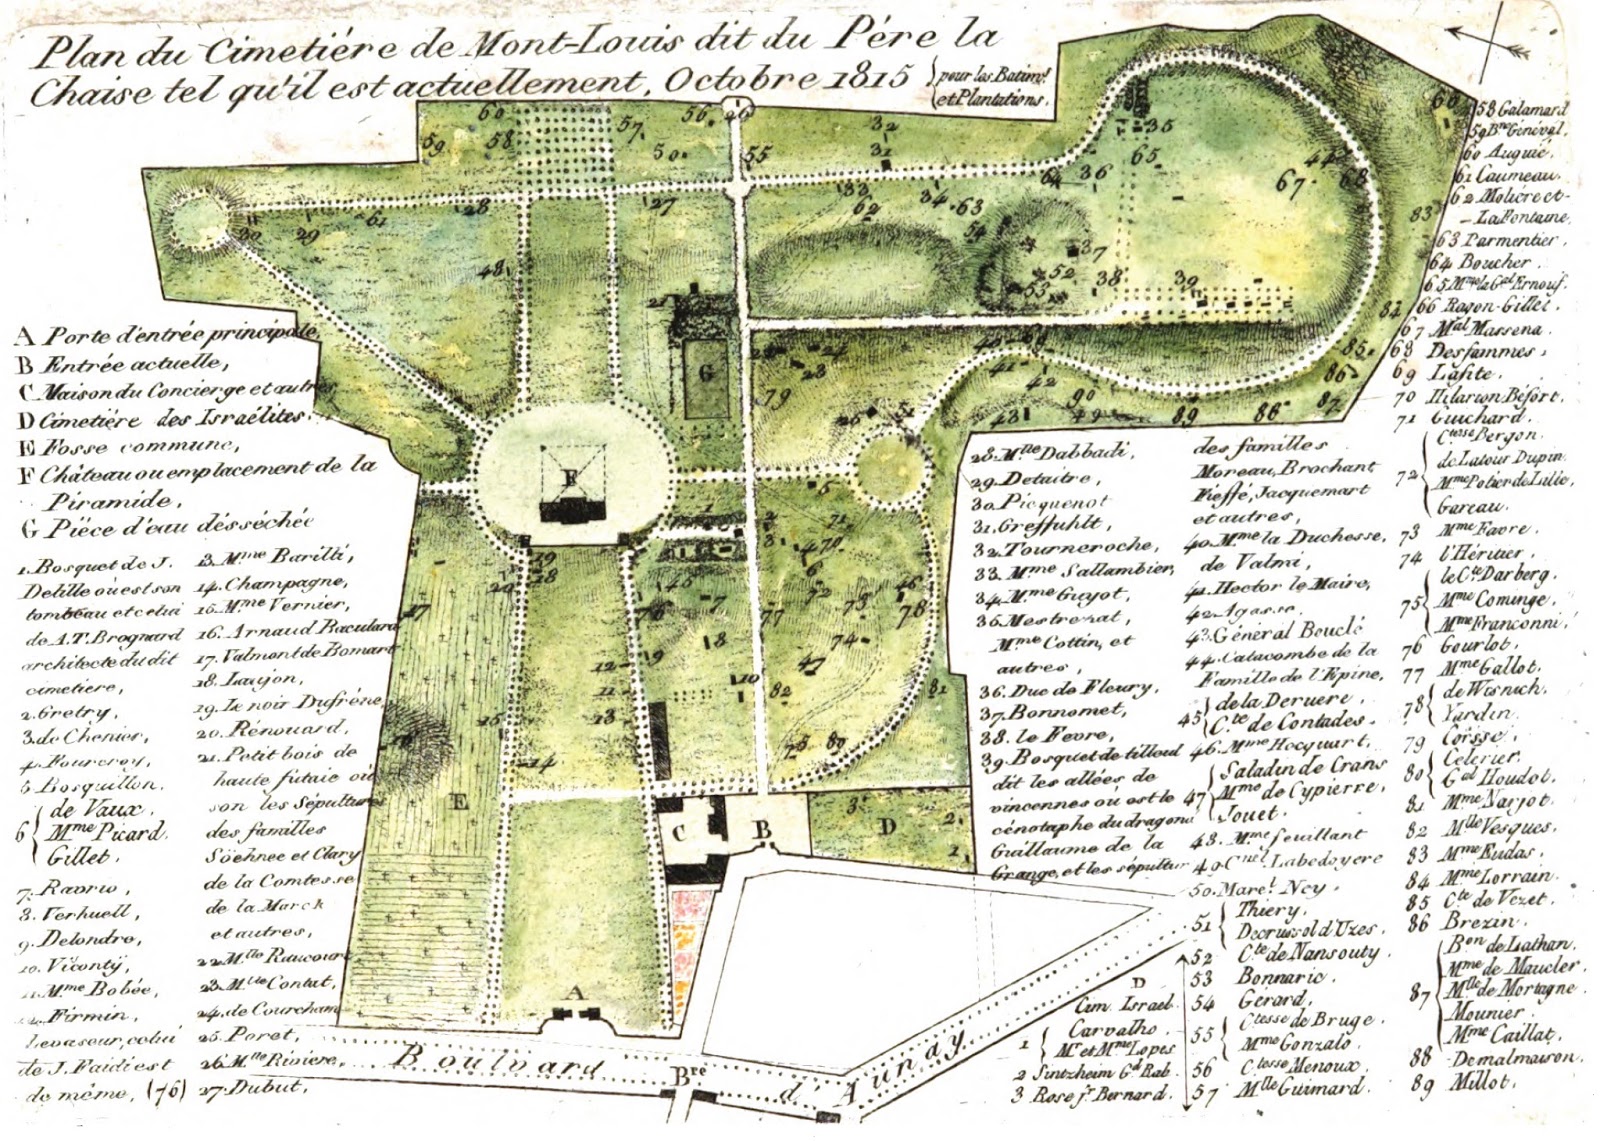 Plan du Cimetiére de Mont-Louis dit du Pére la
Chaise tel qu'il est actuellement, Octobre 1815
pour les Batim.ts
et Plantations.
A Porte d'entrée principale,
B Entrée actuelle,
C Maison du Concierge et autres
D Cimetiére des Israélites.
E Fosse commune,
F Château ou emplacement de la
Piramide,
G Piéce d'eau désséchée
1. Bosquet de J.
Delille où est son
tombeau et celui
de A.T. Brognard
architecte du dit
cimetiere,
2. Gretry,
3. de Chenier,
4. Fourcroy,
5. Bosquillon.
6 { de Vaux.
Mme Picard.
Gillet.
7. Ravrio,
8. Verhuell,
9. Delondre,
10. Viconty,
11. Mme Bobée,
12. Firmin,
Levaseur, celui
de J. Faidi est
de même, (76)
13. Mme Barilli,
14. Champagne,
15. Mme Vernier,
16. Arnaud Baculard
17. Valmont de Bomart
18. Laujon,
19. Le noir Dufréne,
20. Rénouard,
21. Petit bois de
haute futaie où
son les Sépultures
des familles
Söehnee et Clary
de la Comtesse
de la Marck
et autres,
22. Mlle Raucourt
23. Mlle Contat,
24. de Courcham
25. Poret,
26. Mlle Riviere,
27. Dubut,
28. Mlle Dabbadi,
29. Detaitre,
30. Picquenot
31. Greffuhlt,
32. Tourneroche,
33. Mme Sallambier,
34. Mme Guyot,
35. Mestrezat,
Mme Cottin, et
autres,
36. Duc de Fleury,
37. Bonnomet,
38. le Fevre,
39. Bosquet de tilleul
dit les allées de
vincennes où est le
cénotaphe du dragon
Guillaume de la
Grange, et les sépultur
des familles
Moreau, Brochant
Fieffé, Jacquemart
et autres,
40. Mme la Duchesse,
de Valmi,
41. Hector le Maire,
42. Agasse.
43. Général Bouclé
44. Catacombe de la
Famille de l'Epine,
45 { de la Deruere.
Cte de Contades.
46. Mme Hocquart,
47 { Saladin de Crans
Mme de Cypierre,
Jouet.
48. Mme feuillant
49. Cnel Labedoyere
50. Marel. Ney,
51 { Thiery,
Decrussol d'Uzes.
52 Cte de Nansouty
53 Bonnaric,
54 Gerard,
55 { Ctesse de Bruge.
Mme Gonzalo.
56 Ctesse Menoux.
57 Mlle Guimard.
58 Galamard
59 Bne Généval,
60 Auguié.
61 Caumeau.
62 Moliére et
- La Fontaine,
63 Parmentier,
64 Boucher.
65. Mme la Gal Ernouf.
66 Ragon-Gillet.
67 Mal Massena.
68 Desfammes,
69 Lafite.
70 Hilarion Béfort.
71 Guichard.
72 { Ctesse Bergon.
de Latour Dupin.
Mme Potier de Lille,
Gareau.
73 Mme Favre.
74 l'Héritier.
75 { le Cte Darberg.
Mme Cominge.
Mme Franconni,
76 Gourlot,
77 Mme Gallot.
78 { de Wisnich.
Yardin.
79 Coësse,
80 { Celerier.
Gal Houdot.
81 Mme Narjot.
82 Mlle Vesques,
83 Mme Eudas,
84 Mme Lorrain.
85 Cte de Vezet.
86 Brezin.
87 { Bon de Lathan.
Mme de Maucler
Mlle de Mortagne
Mounier.
Mme Caillat,
88 Demalmaison.
89 Millot.
D
Cim. Israel.
1 { Carvalho.
Mr et Mme Lopes
2 Sintzheim Gd Rab.
3 Rose jne Bernard.
A
B
C
D
E
F
G
Boulvard d'Aunay
Bre